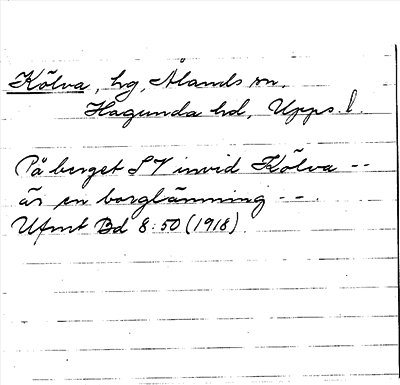 Kölva, hg, Ålands sn.
Hagunda hd, Upps. l.
På berget SV invid Kölva --
är en borglämning --.
Ufmt Bd 8:50 (1918).